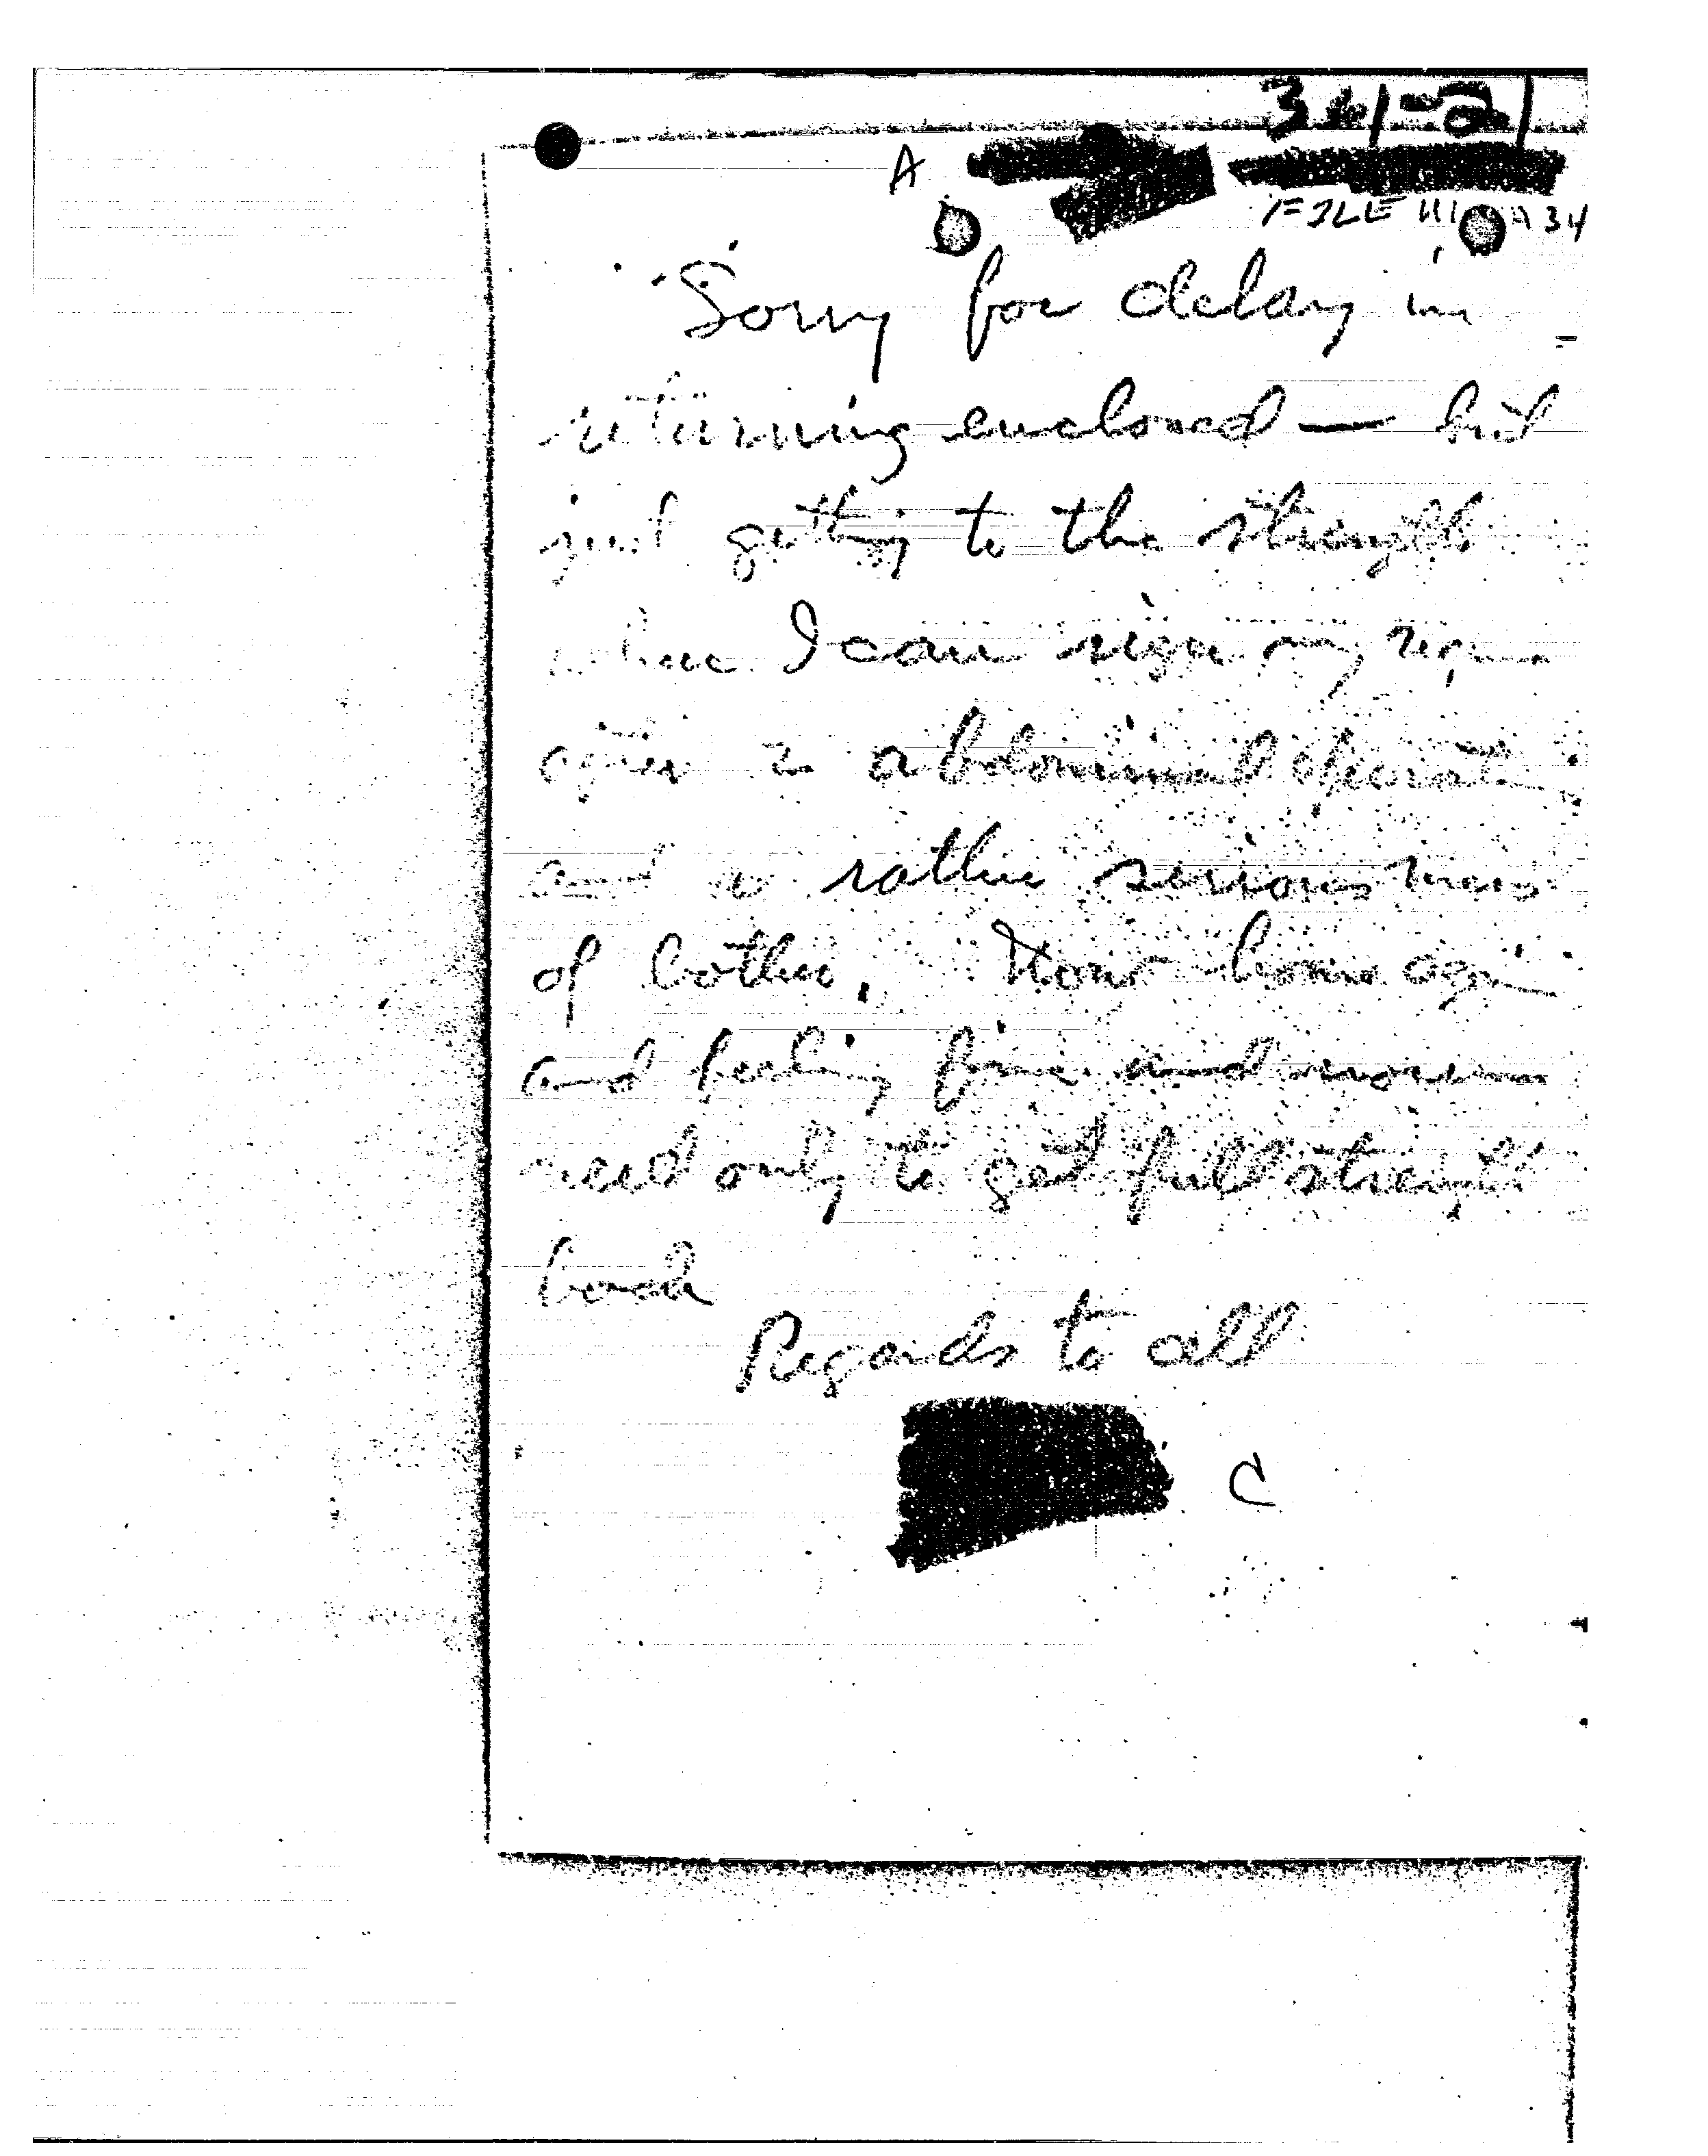 341-21
A
FILE
Sorry for delay in
returning enclosed — but
just getting to the strength
where I can sign my
after 2 abdominal
and a rather serious
of bother. Now home
and feeling fine and now
need only to get full strength
back
Regards to all
C